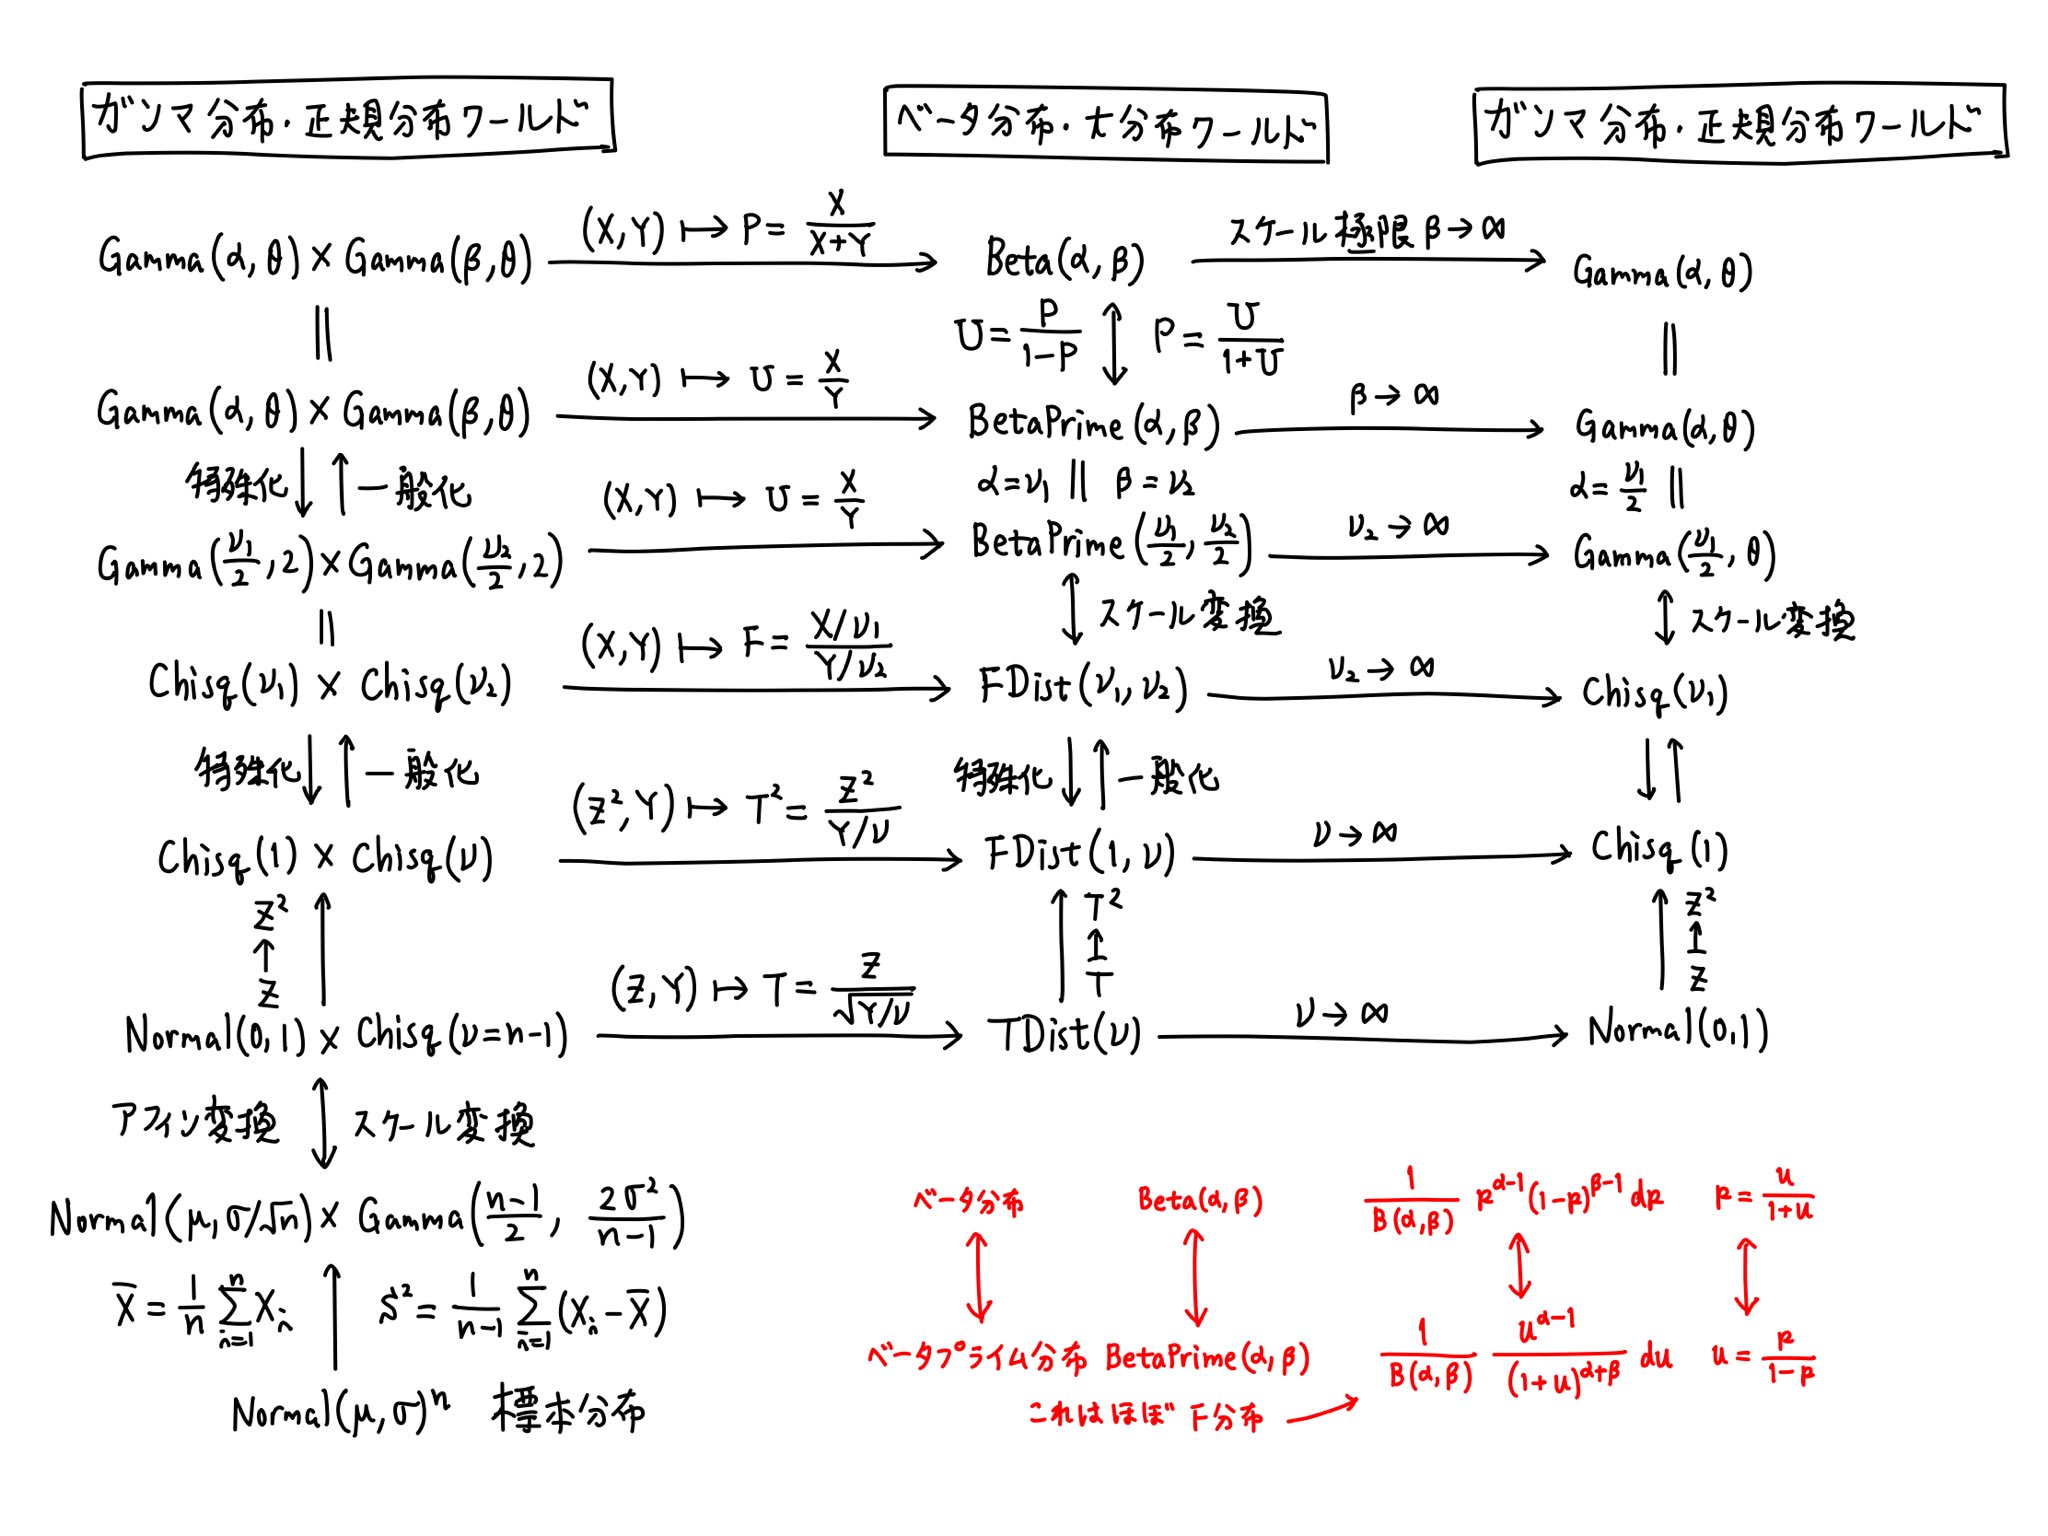 ガンマ分布・正規分布ワールド
ベータ分布・t分布ワールド
ガンマ分布・正規分布ワールド
Gamma(α, θ) × Gamma(β, θ)
(X, Y) ↦ P = X/(X+Y)
Beta(α, β)
スケール極限 β → ∞
Gamma(α, θ)
||
U = P/(1-P) ↕ P = U/(1+U)
||
Gamma(α, θ) × Gamma(β, θ)
(X, Y) ↦ U = X/Y
BetaPrime(α, β)
β → ∞
Gamma(α, θ)
特殊化 ↓ ↑ 一般化
α = ν₁ || β = ν₂
α = ν₁/2 ||
Gamma(ν₁/2, 2) × Gamma(ν₂/2, 2)
(X, Y) ↦ U = X/Y
BetaPrime(ν₁/2, ν₂/2)
ν₂ → ∞
Gamma(ν₁/2, θ)
||
↕ スケール変換
↕ スケール変換
Chisq(ν₁) × Chisq(ν₂)
(X, Y) ↦ F = (X/ν₁)/(Y/ν₂)
FDist(ν₁, ν₂)
ν₂ → ∞
Chisq(ν₁)
特殊化 ↓ ↑ 一般化
特殊化 ↓ ↑ 一般化
↓ ↑
Chisq(1) × Chisq(ν)
(Z², Y) ↦ T² = Z²/(Y/ν)
FDist(1, ν)
ν → ∞
Chisq(1)
Z²
↑
Z
T²
↥
T
Z²
↥
Z
Normal(0, 1) × Chisq(ν = n-1)
(Z, Y) ↦ T = Z/√(Y/ν)
TDist(ν)
ν → ∞
Normal(0, 1)
アフィン変換 ↕ スケール変換
Normal(μ, σ/√n) × Gamma((n-1)/2, 2σ²/(n-1))
X̄ = 1/n Σ_{i=1}^{n} X_i ↑ S² = 1/(n-1) Σ_{i=1}^{n} (X_i - X̄)
Normal(μ, σ)ⁿ 標本分布
ベータ分布 Beta(α, β) 1/B(α, β) p^{α-1} (1-p)^{β-1} dp p = u/(1+u)
↕ ↕ ↕ ↕
ベータプライム分布 BetaPrime(α, β) 1/B(α, β) u^{α-1}/(1+u)^{α+β} du u = p/(1-p)
これはほぼF分布 →